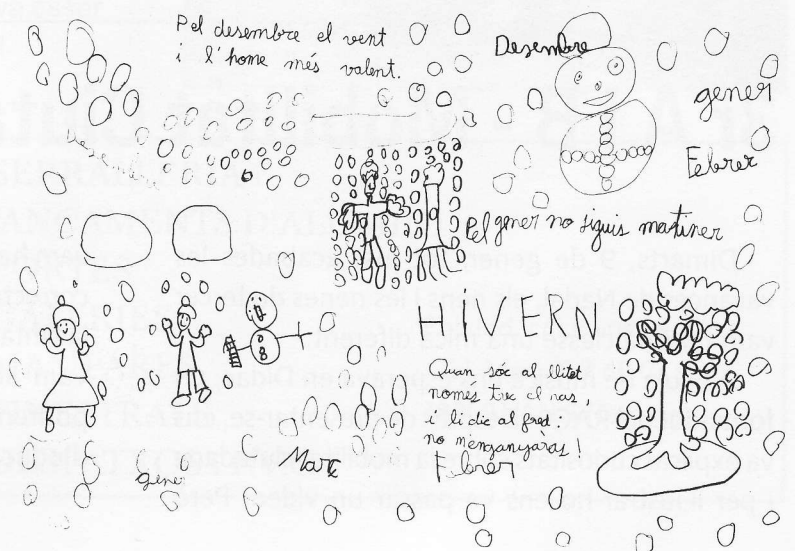 Pel desembre el vent
i l'home més valent.
Desembre
gener
Febrer
Pel gener no siguis matiner
HIVERN
Quan sóc al llitet
nomes trec el nas,
i li dic al fret:
no m'enganyaràs!
Febrer
Març
gener